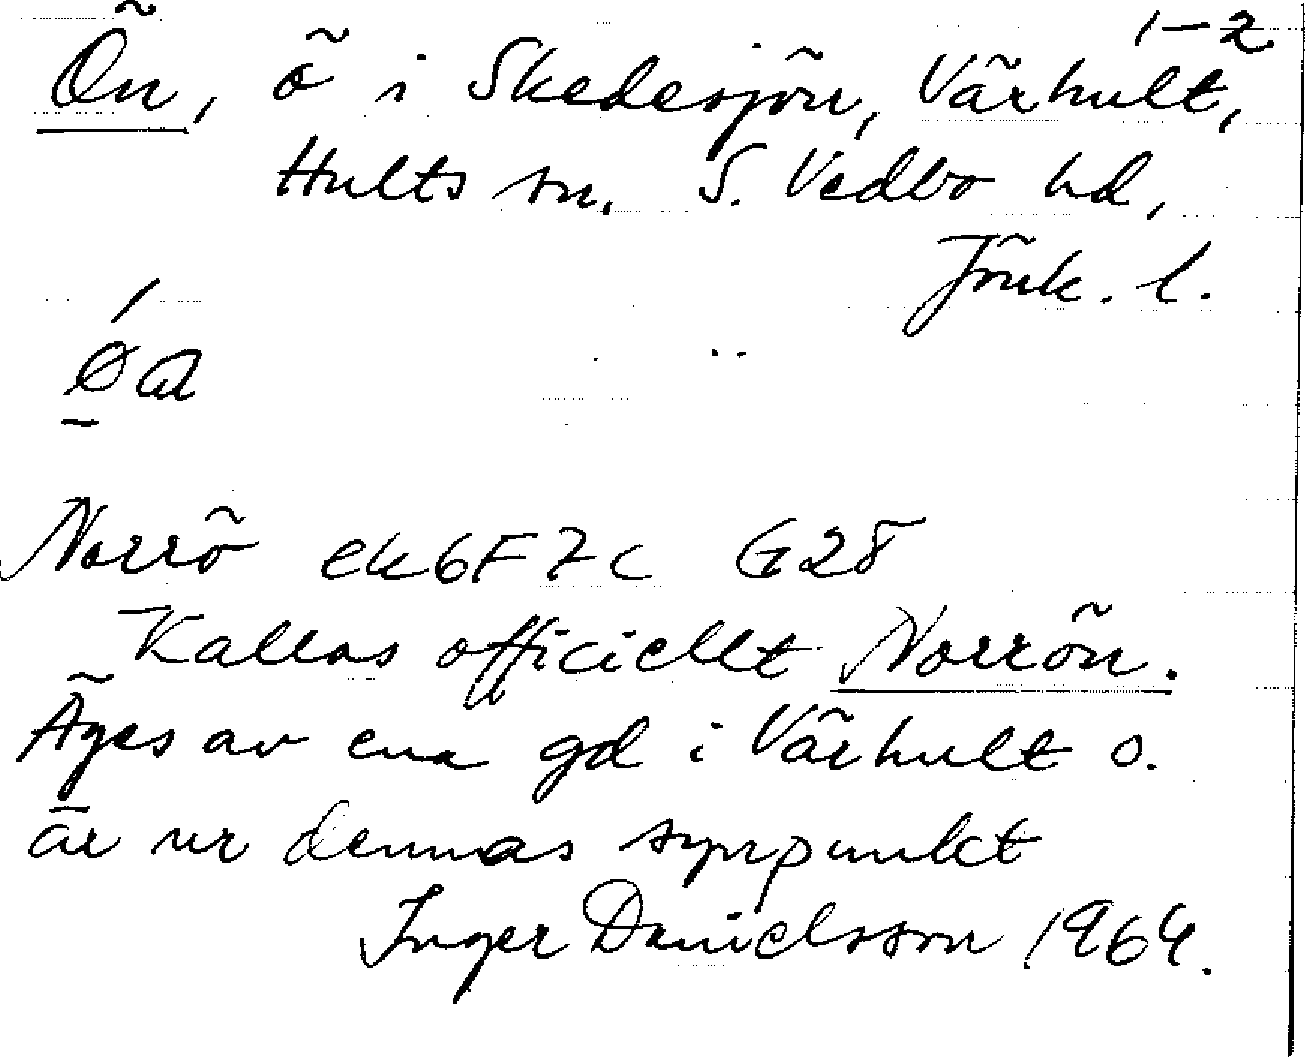 1–2
Ön, ö i Skedesjön, Värhult,
Hults sn. S. Vedbo hd,
Jönk. l.
Norrö ek6F7c G28
Kallas officiellt Norrön.
Äges av ena gd i Värhult o.
är ur dennas synpunkt
Inger Danielsson 1964.